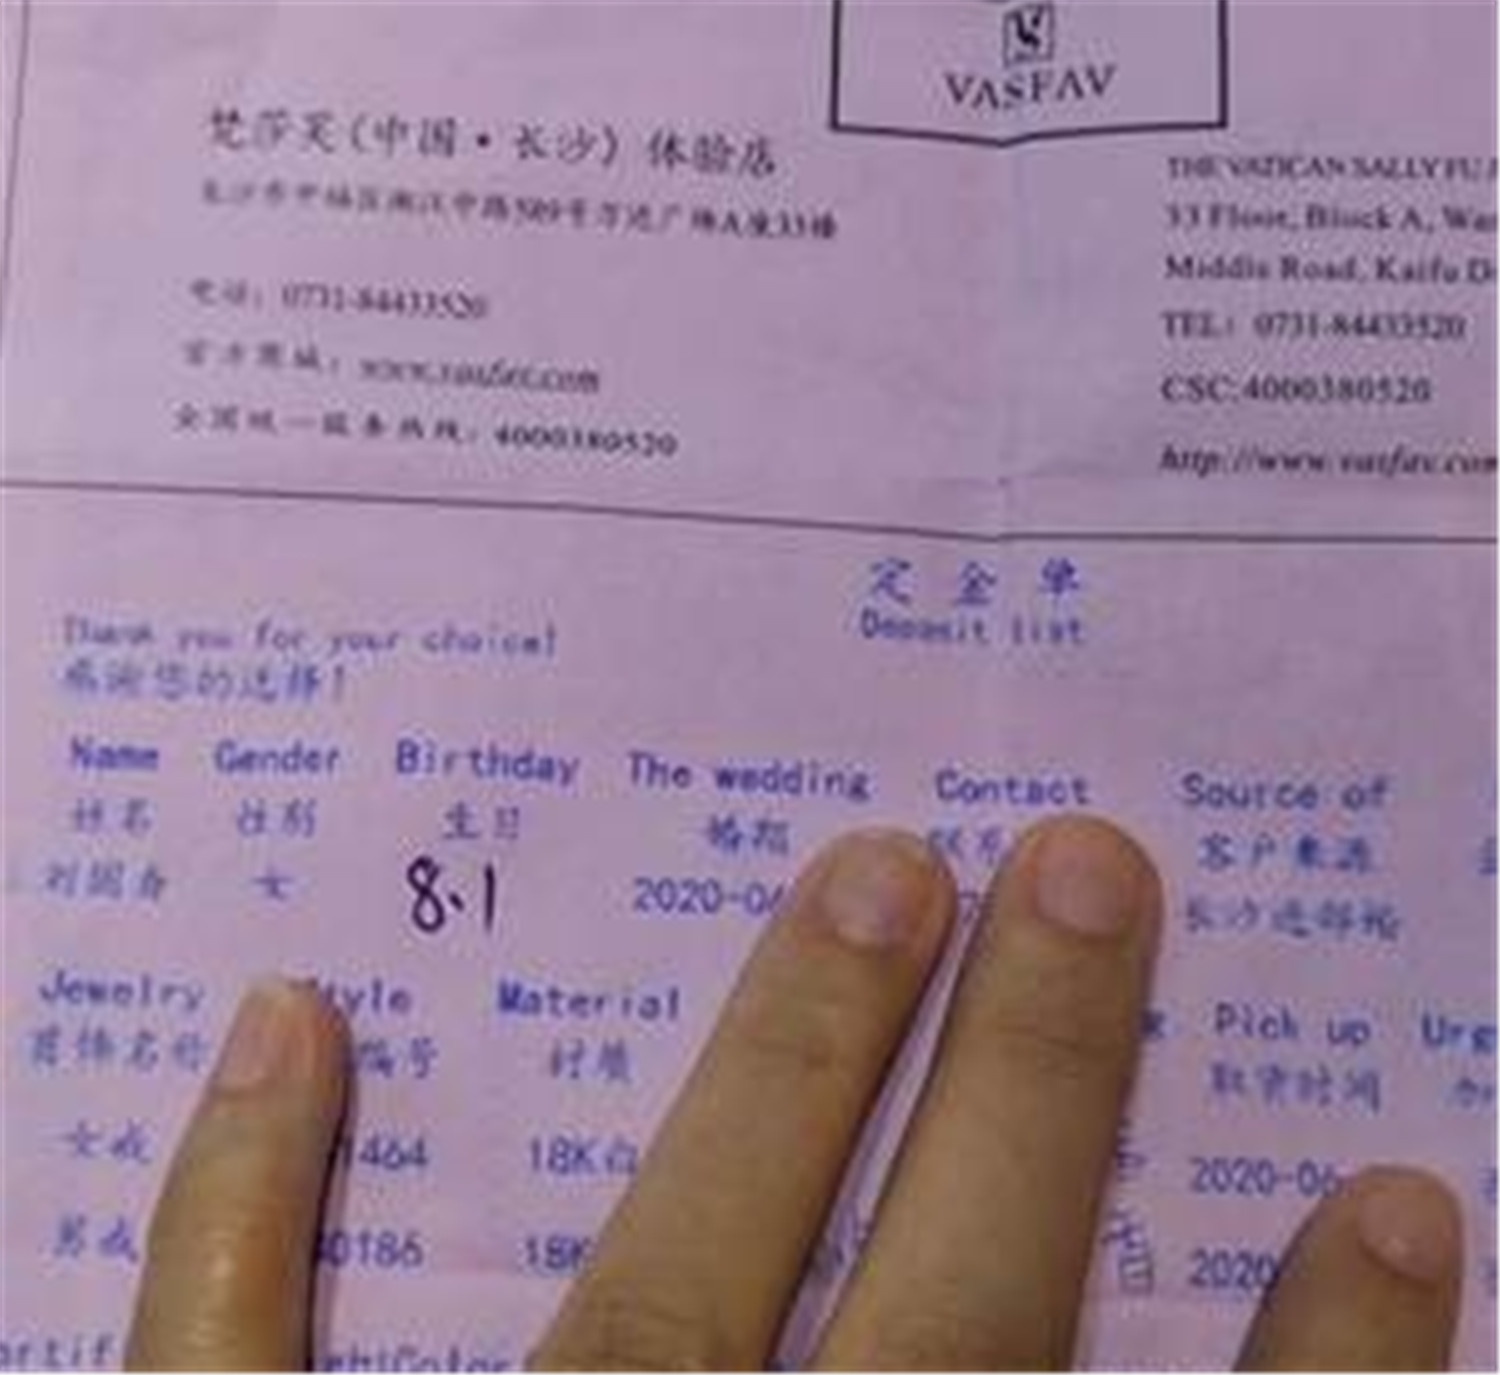 VASFAV
梵莎芙(中国·长沙) 体验店
长沙市开福区湘江中路589号万达广场A座33楼
电话：0731-84433520
官方商城：www.vasfav.com
全国统一服务热线：4000380520
THE VATICAN SALLY FU
33 Floor, Block A, Wan
Middle Road, Kaifu D
TEL：0731-84433520
CSC:4000380520
http://www.vasfav.com
定 金 单
Deposit list
Thank you for your choice!
感谢您的选择!
Name Gender Birthday The wedding Contact Source of
姓名 性别 生日 婚期 联系 客户来源
女 8.1 2020-06 长沙
Jewelry Style Material Pick up Urg
首饰名称 编号 材质 取货时间 加
女戒 1464 18K白 2020-06
男戒 0186 18K 2020
ertif ght Color